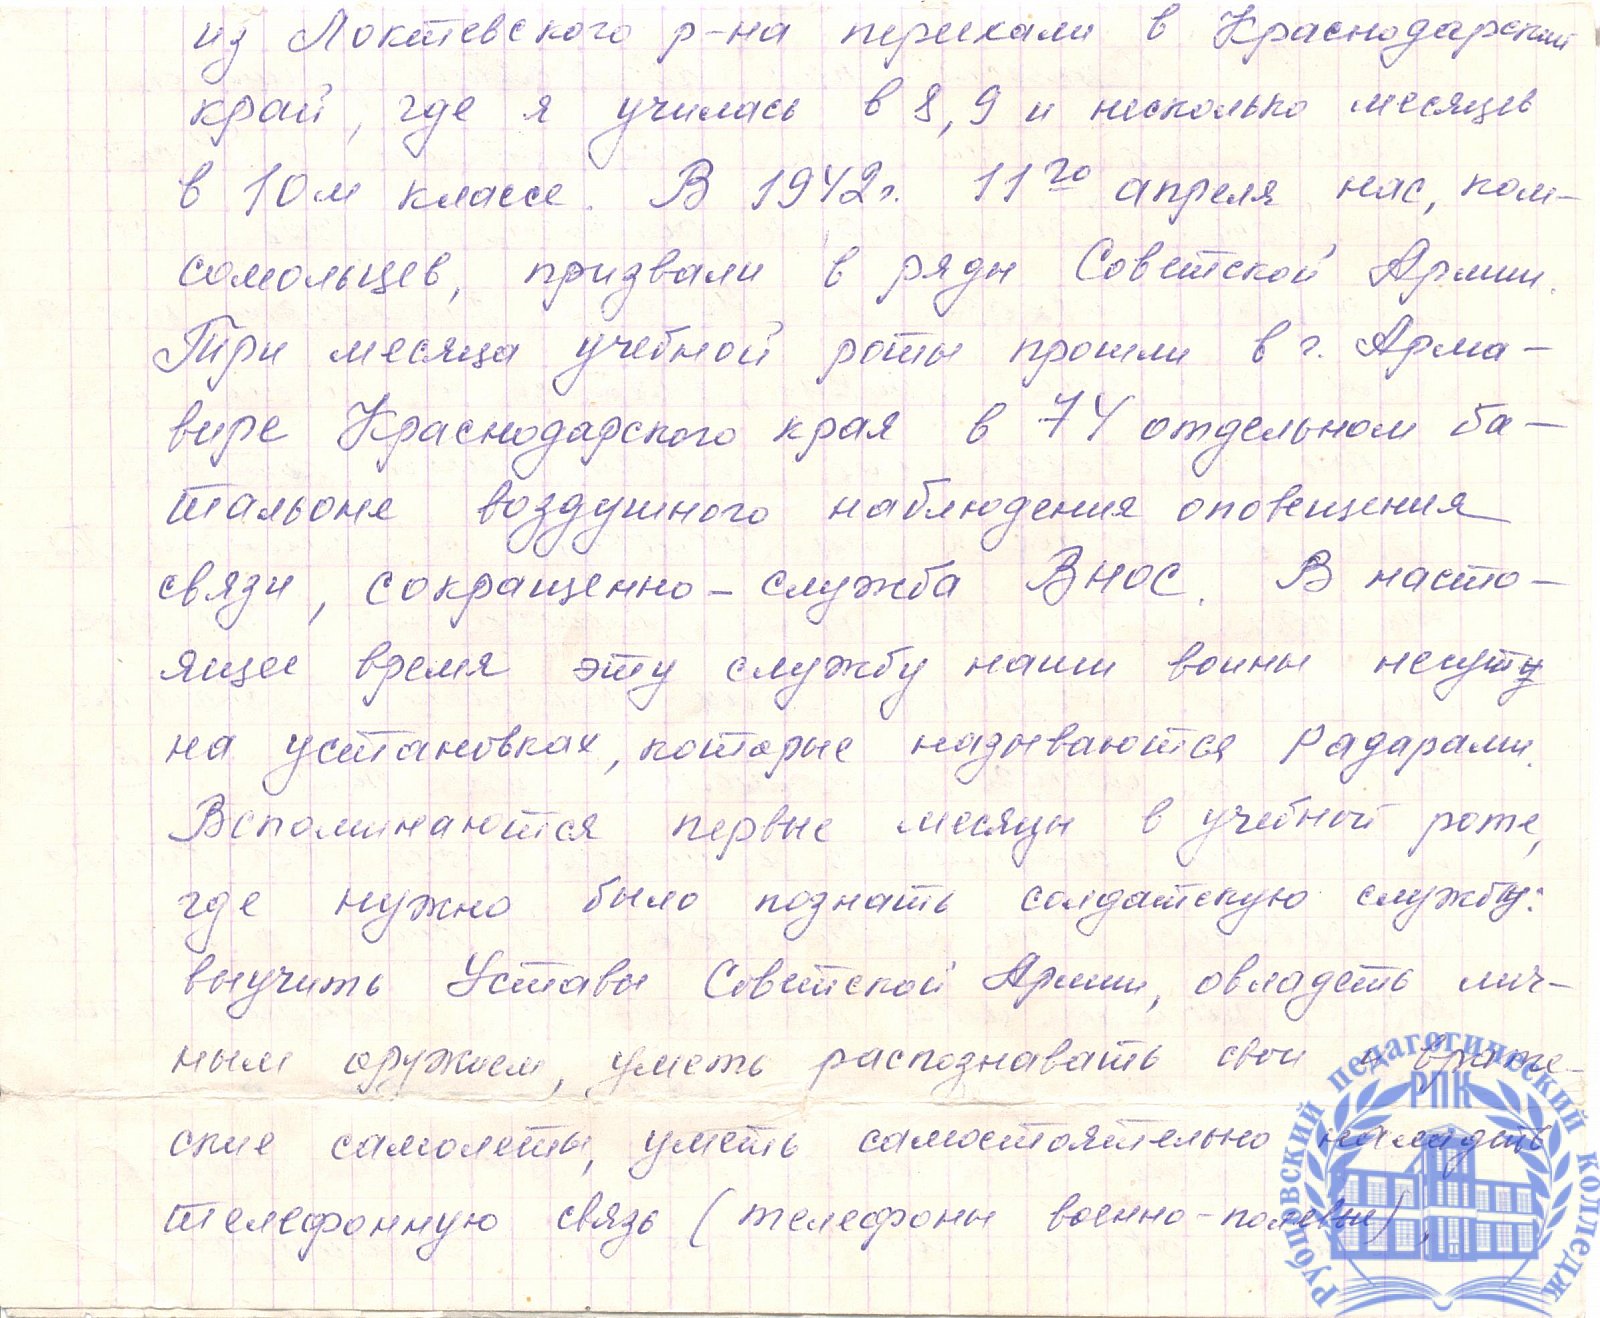 из Локтевского р-на переехали в Краснодарский
край, где я училась в 8, 9 и несколько месяцев
в 10м классе. В 1942г. 11го апреля нас, ком-
сомольцев, призвали в ряды Советской Армии.
Три месяца учебной роты прошли в г. Арма-
вире Краснодарского края в 74 отдельном ба-
тальоне воздушного наблюдения оповещения
связи, сокращенно - служба ВНОС. В насто-
ящее время эту службу наши воины несут
на установках, которые называются Радарами.
Вспоминаются первые месяцы в учебной роте,
где нужно было познать солдатскую службу:
выучить Уставы Советской Армии, овладеть лич-
ным оружием, уметь распознавать свои и враже-
ские самолеты, уметь самостоятельно наладить
телефонную связь (телефоны военно-полевые),
Рубцовский педагогический колледж
РПК